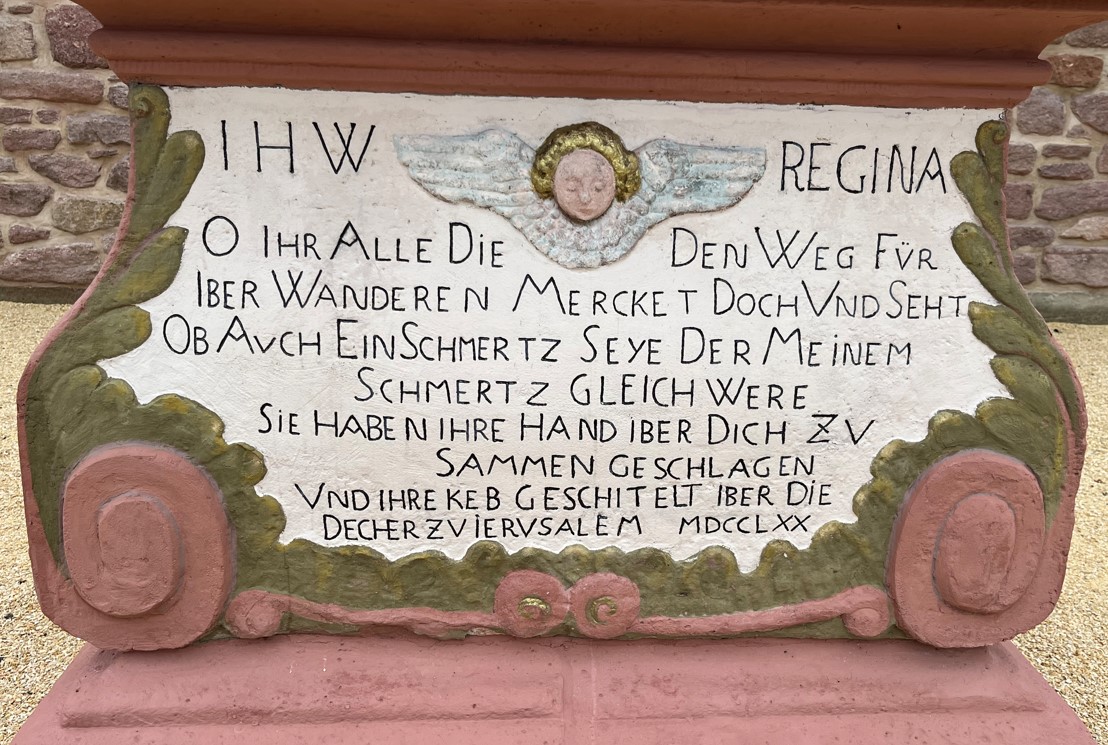 IHW REGINA
O IHR ALLE DIE DEN WEG FÜR
IBER WANDEREN MERCKET DOCH VND SEHT
OB AVCH EIN SCHMERTZ SEYE DER MEINEM
SCHMERTZ GLEICH WERE
SIE HABEN IHRE HAND IBER DICH ZV
SAMMEN GESCHLAGEN
VND IHRE KEB GESCHITELT IBER DIE
DECHER ZV IERVSALEM MDCCLXX